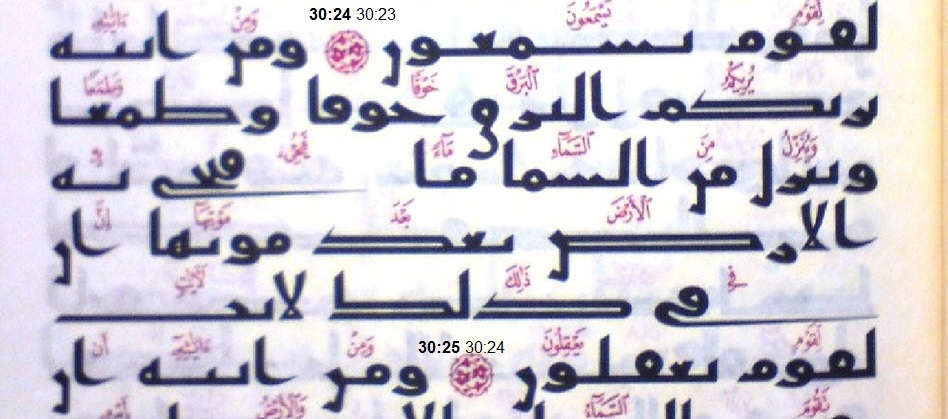 30:24 30:23
لِقَوْمٍ يَسْمَعُونَ وَمِنْ ءَايَٰتِهِۦ
لقوم يسمعون ومن ايته
يُرِيكُمُ ٱلْبَرْقَ خَوْفًا وَطَمَعًا
يريكم البرق خوفا وطمعا
وَيُنَزِّلُ مِنَ ٱلسَّمَآءِ مَآءً فَيُحْىِۦ بِهِ
وينزل من السما ما فيحى به
ٱلْأَرْضَ بَعْدَ مَوْتِهَآ إِنَّ
الارض بعد موتها ان
فِى ذَٰلِكَ لَءَايَٰتٍ
فى ذلك لايت
30:25 30:24
لِقَوْمٍ يَعْقِلُونَ وَمِنْ ءَايَٰتِهِۦٓ أَن
لقوم يعقلون ومن ايته ان
تَقُومَ ٱلسَّمَآءُ وَٱلْأَرْضُ بِأَمْرِهِۦ